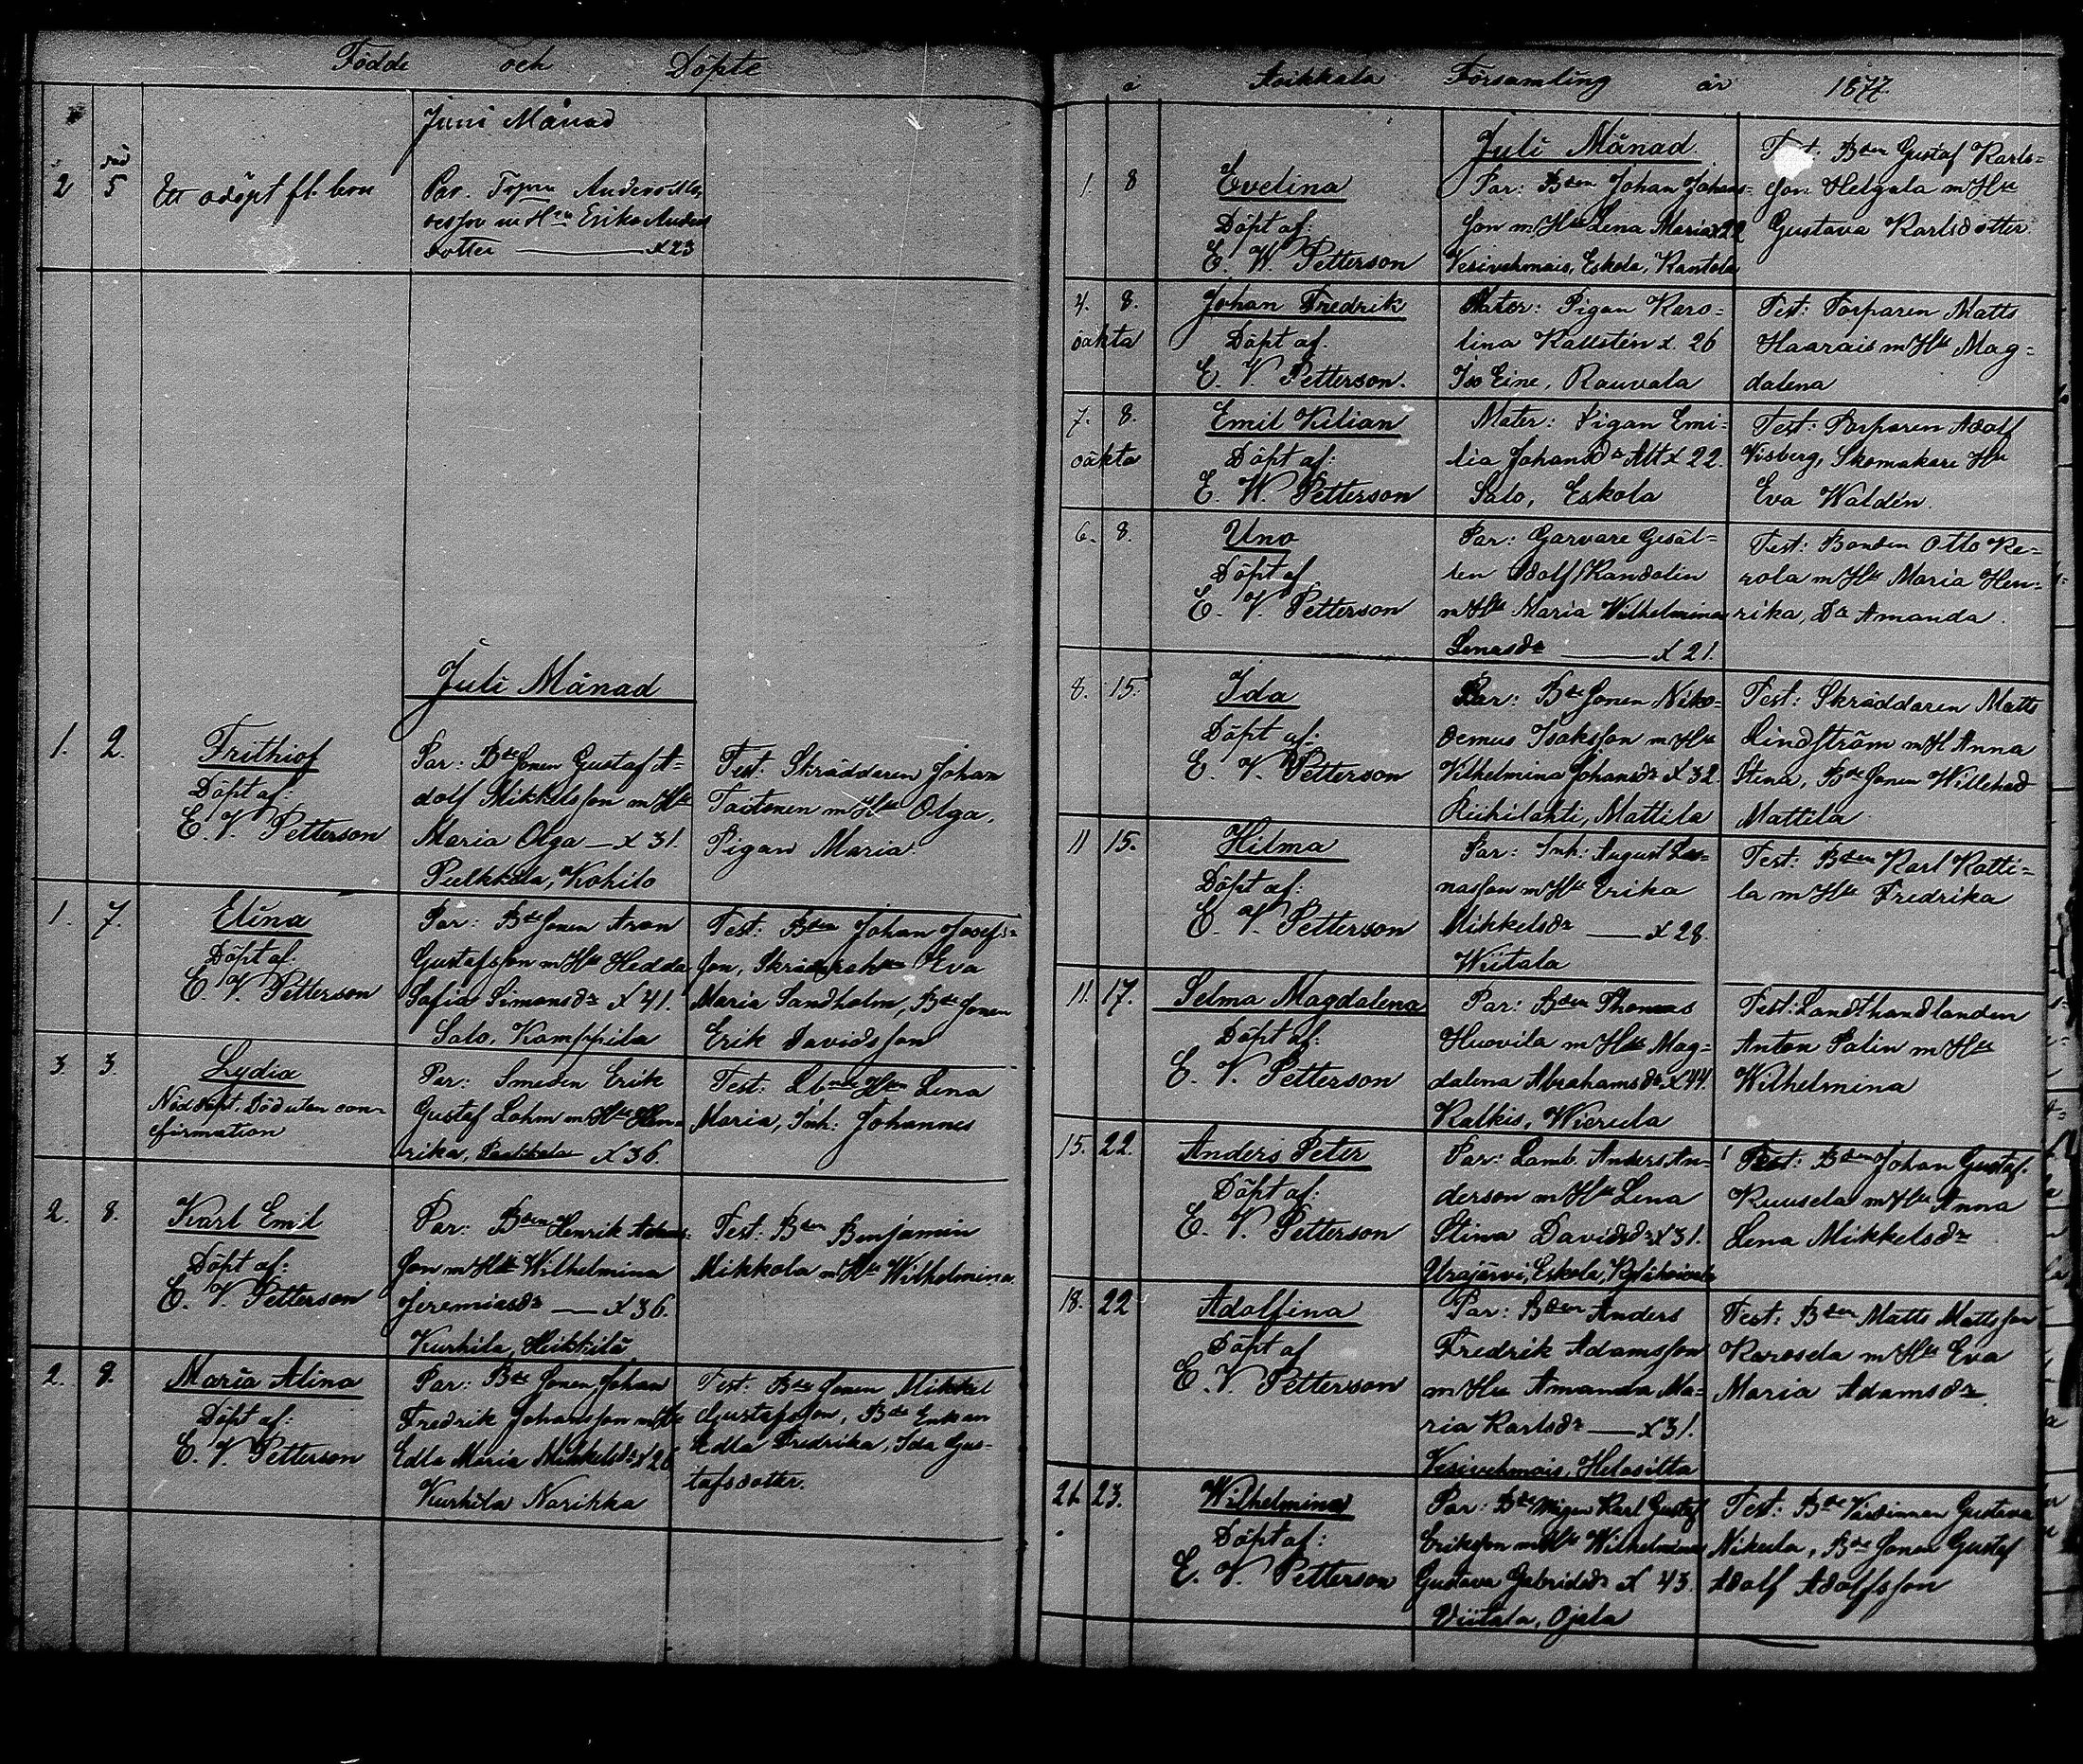 Födde och Döpte
Juni Månad
2 död 5 Ett odöpt fl. barn
Par.
m Hu Erika Anders
dotter — x 23
Juli Månad
1. 2. Frithiof
Döpt af:
E. V. Petterson
Par: Bdesonen Gustaf A=
dolf Mikkelsson m Hu
Maria Olga — x 31.
Pulkkila, Kohilo
Test: Skräddaren Johan
Taitonen m Hu Olga,
Pigan Maria.
1. 7. Elina
Döpt af:
E. V. Petterson
Par: Bdesonen Aron
Gustafsson m Hu Hedda
Sofia Simonsdr x 41.
Salo, Kamppila
Test: Bden Johan Josefs=
son, Eva
Maria Sandholm, Bdesonen
Erik Davidsson
3. 3. Lydia
Nöddöpt. Död utan con=
firmation
Par: Smeden Erik
Gustaf Lohm m Hu Hen=
rika, x 36.
Test: Lena
Maria, Inh: Johannes
2. 8. Karl Emil
Döpt af:
E. V. Petterson
Par: Bden Henrik
son m Hu Wilhelmina
Jeremiasdr — x 36.
Kurhila, Heikkilä
Test: Bden Benjamin
Mikkola m Hu Wilhelmina.
2. 9. Maria Alina
Döpt af:
E. V. Petterson
Par: Bdesonen Johan
Fredrik Johansson m Hu
Edla Maria Mikkelsdr x 26
Kurhila Narikka
Test: Bdesonen Mikkel
Gustafsson, Bde Enkan
Edla Fredrika, Ida Gus=
tafsdoter.
i Asikkala Församling år 1877.
Juli Månad
1. 8 Evelina
Döpt af:
E. W. Petterson
Par: Bden Johan Johans=
son m Hu Lena Maria x 22
Vesivehmais, Eskola, Kantola
Test: Bden Gustaf Karls=
son Helgala m Hu
Gustava Karlsdotter.
4. 8. oäkta Johan Fredrik
Döpt af.
E. V. Petterson.
Mater: Pigan Karo=
lina Kallstén x. 26
Iso Eine, Rauvala
Test: Torparen Matts
Haarais m Hu Mag=
dalena
7. 8. oäkta Emil Kilian
Döpt af:
E. W. Petterson
Mater: Pigan Emi=
lia Johansdr Alt x 22.
Salo, Eskola
Test: Torparen Adolf
Visberg, Skomakare Hu
Eva Waldén.
6. 8. Uno
Döpt af
E. V. Petterson
Par: Garvare Gesäl=
len Adolf Randolin
m Hu Maria Wilhelmina
Lenasdr — x 21.
Test: Bonden Otto Ke=
rola m Hu Maria Hen=
rika, Dr Amanda.
8. 15. Ida
Döpt af:
E. V. Petterson
Par: Bdesonen Niko=
demus Isaksson m Hu
Vilhelmina Johansdr x 32.
Riihilahti, Mattila
Test: Skräddaren Matts
Lindström m H Anna
Stina, Bdesonen Willehad
Mattila
11 15. Hilma
Döpt af:
E. V. Petterson
Par: Inh: August
nasson m Hu Erika
Mikkelsdr — x 28.
Wiitala
Test: Bden Karl Katti=
la m Hu Fredrika
11. 17. Selma Magdalena
Döpt af:
E. V. Petterson
Par: Bden Thomas
Huovila m Hu Mag=
dalena Abrahamsdr x 44.
Kalkis, Wierula
Test: Landthandlanden
Anton Salin m Hu
Wilhelmina
15. 22. Anders Peter
Döpt af:
E. V. Petterson
Par: Lamb. Anders An=
derson m Hu Lena
Stina Davidsdr x 31.
Urajärvi, Eskola,
Test: Bden Johan Gustaf
Kuusela m Hu Anna
Lena Mikkelsdr
18. 22 Adolfina
Döpt af
E. V. Petterson
Par: Bden Anders
Fredrik Adamsson
m Hu Amanda Ma=
ria Karlsdr — x 31.
Vesivehmais, Helasilta
Test: Bden Matts Mattsson
Karosela m Hu Eva
Maria Adamsdr.
21. 23. Wilhelmina
Döpt af:
E. V. Petterson
Par: Bdemågen Karl Gustaf
Eriksson m Hu Wilhelmina
Gustava Gabrielsdr x 43.
Viitala, Ojala
Test: Bdevärdinnan Gustava
Nikula, Bdesonen Gustaf
Adolf Adolfsson